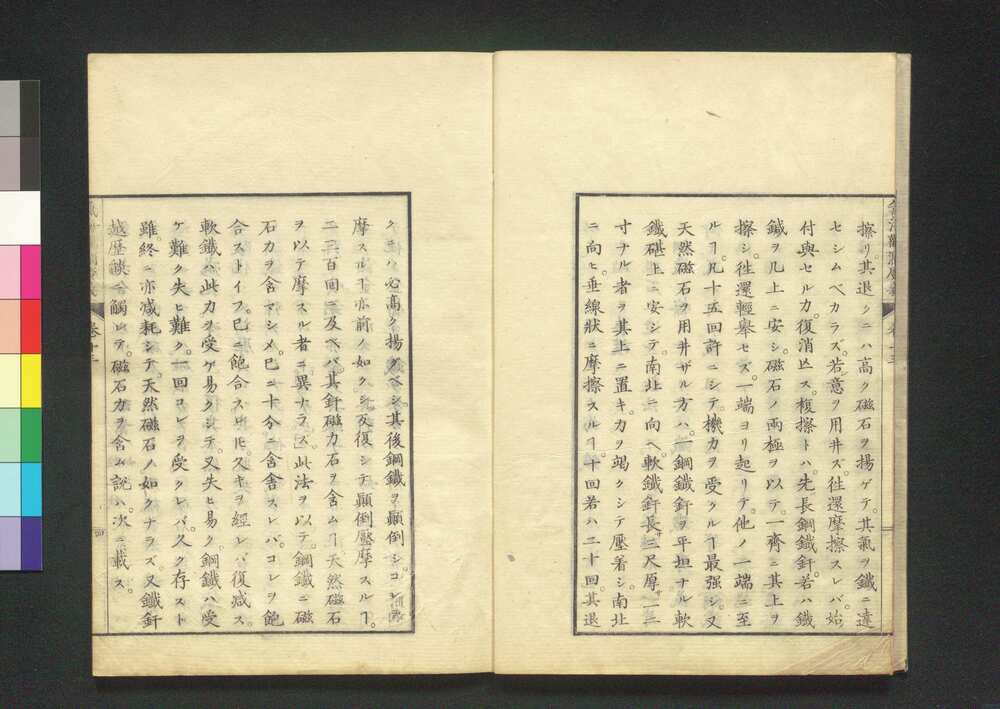 擦リ。其退クニハ高ク磁石ヲ揚ゲテ。其氣ヲ鐵ニ違
セシムベカラズ。若意ヲ用井ズ。往還摩擦スレバ。始
付與セル力。復消亾ス。複擦トハ。先長鋼鐵釬。若ハ鐵
鍼ヲ几上ニ安シ。磁石ノ両極ヲ以テ。一齊ニ其上ヲ
擦シ。徃還輕擧セズ。一端ヨリ起リテ。他ノ一端ニ至
ルヿ。凡十五回許ニシテ。機力ヲ受クルヿ最强シ。又
天然磁石ヲ用井ザル方ハ。一鋼鐵釬ヲ平坦ナル軟
鐵碪上ニ安シテ。南北ニ向ヘ。軟鐵釬長。三尺厚。一二
寸ナル者ヲ其上ニ置キ。力ヲ竭クシテ壓着シ。南北
ニ向ヒ。垂線狀ニ摩擦スルヿ。十回若ハ二十回。其退
クニハ必高ク揚グベシ。其後鋼鐵ヲ顚倒シ。コレヲ
摩スルヿ亦前ノ如クシ。反復シテ顚倒壓摩スルヿ。
二三百回ニ及ベバ。其釬磁力石ヲ含ムヿ。天然磁石
ヲ以テ摩スル者ニ異ナラズ。此法ヲ以テ。鋼鐵ニ磁
石力ヲ含マシメ。已ニ十分ニ含舎スレバ。コレヲ飽
合ストイフ。已ニ飽合スㇵ𪜈。久キヲ經レバ復减ス。
軟鐵ハ此力ヲ受ケ易クシテ。又失ヒ易ク。鋼鐵ハ受
ケ難ク失ヒ難ク。一回コレヲ受クレバ。久ク存スト
雖。終ニ亦减耗シテ。天然磁石ノ如クナラズ。又鐵釬
越歷的ニ觸レテ。磁石力ヲ含ム說ハ。次ニ載ス。